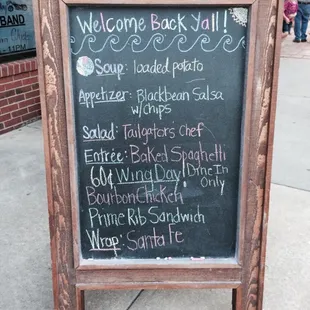 BAND
Welcome Back Yall!
Soup: loaded potato
Appetizer: Blackbean Salsa
w/chips
Salad: Tailgators Chef
Entrée: Baked Spaghetti
60¢ Wing Day! Dine In
Only
Bourbon Chicken
Prime Rib Sandwich
Wrap: Santa Fe